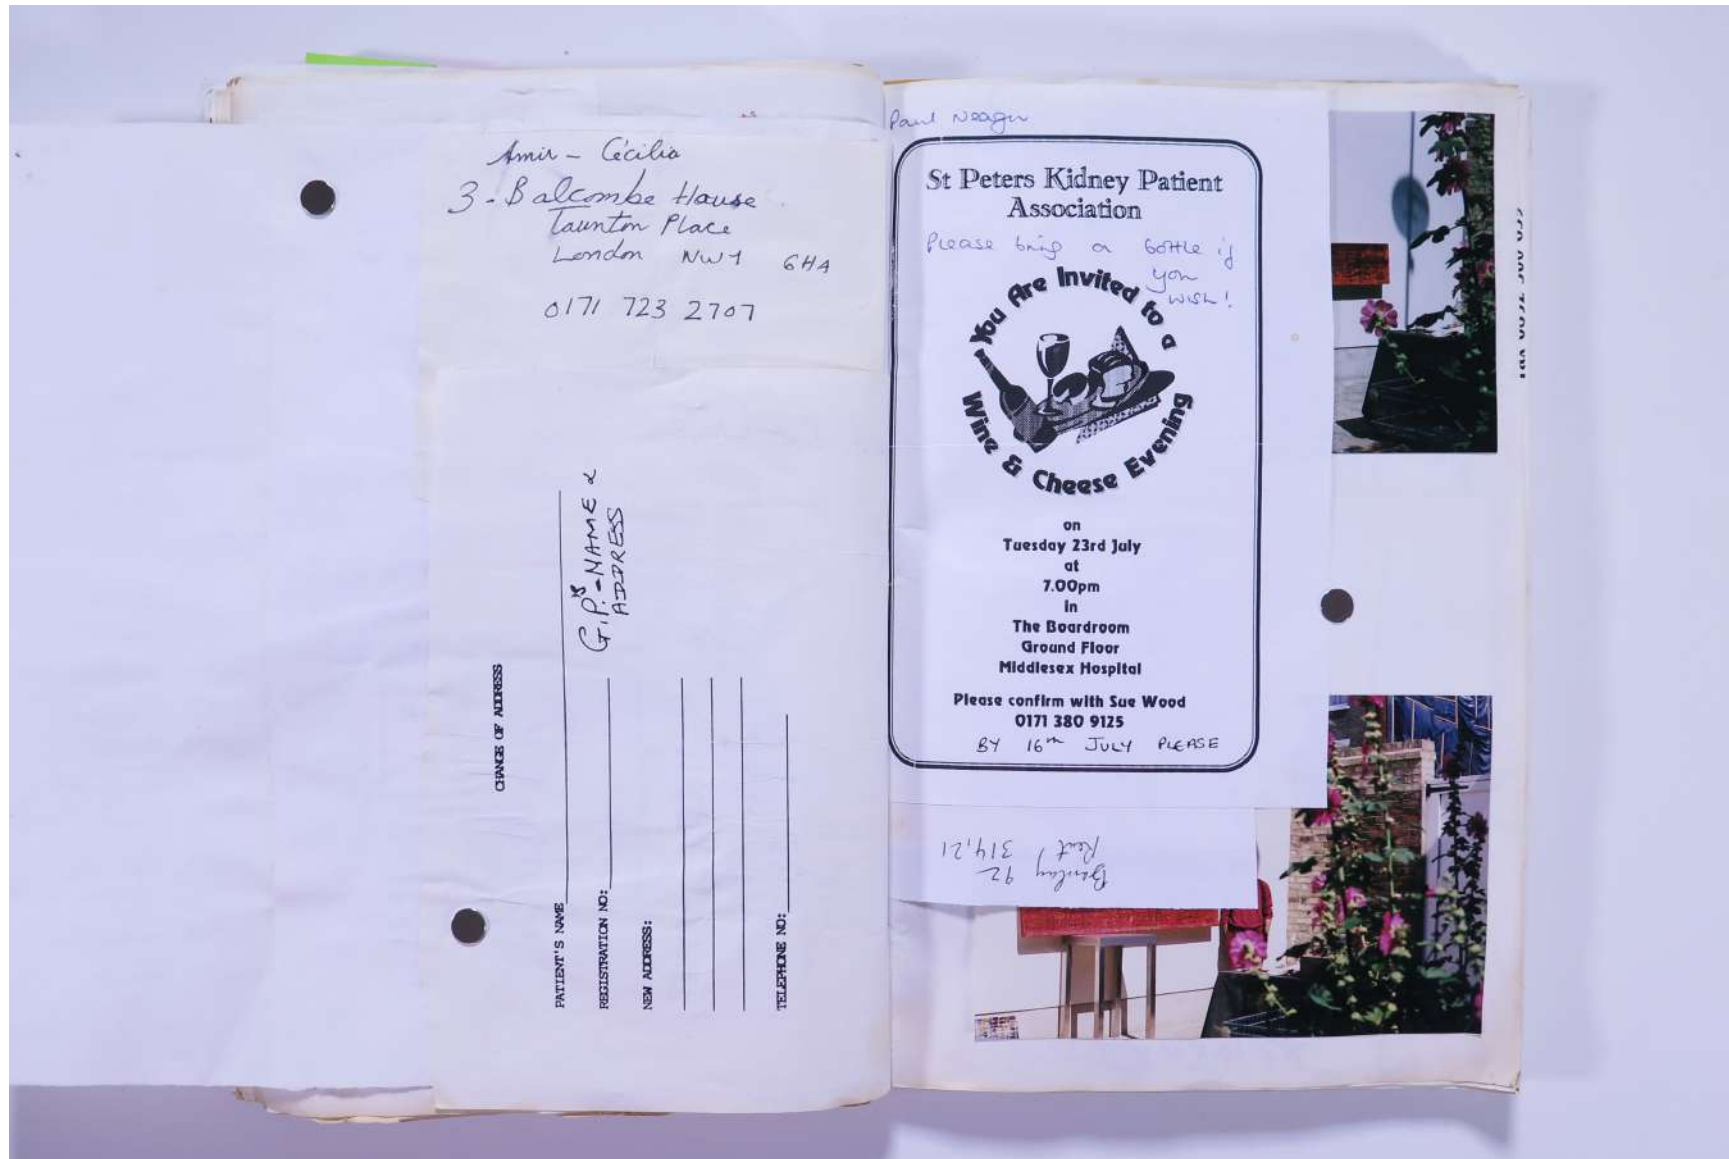 Amir - Cécilia
3 - Balcombe House
Taunton Place
London NW1 6HA
0171 723 2707
CHANGE OF ADDRESS
PATIENT'S NAME
G.P.'s - NAME &
ADDRESS
REGISTRATION NO:
NEW ADDRESS:
TELEPHONE NO:
Paul Neagu
St Peters Kidney Patient
Association
Please bring a bottle if
you
wish!
You Are Invited to a
Wine & Cheese Evening
on
Tuesday 23rd July
at
7.00pm
in
The Boardroom
Ground Floor
Middlesex Hospital
Please confirm with Sue Wood
0171 380 9125
BY 16th JULY PLEASE
92
Rent 314,21